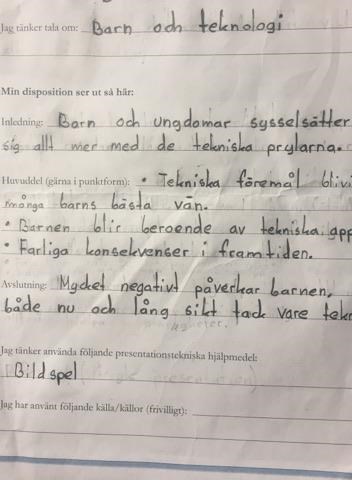 Jag tänker tala om: Barn och teknologi.
Min disposition ser ut så här:
Inledning: Barn och ungdomar sysselsätter
sig allt mer med de tekniska prylarna.
Huvuddel (gärna i punktform): • Tekniska föremål blivi
många barns bästa vän.
• Barnen blir beroende av tekniska app
• Farliga konsekvenser i framtiden.
Avslutning: Mycket negativt påverkar barnen,
både nu och lång sikt tack vare tekn
Jag tänker använda följande presentationstekniska hjälpmedel:
Bildspel
Jag har använt följande källa/källor (frivilligt):